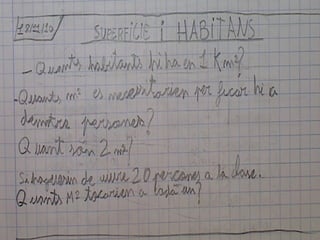 SUPERFÍCIE i HABITANS
- Quants habitants hi ha en 1 Km²?
- Quants m² es necesitarien per ficar hi a
persones?
Quant són 2 m²?
de viure 20 persones a la clase.
Quants M² tocarien a cada un?